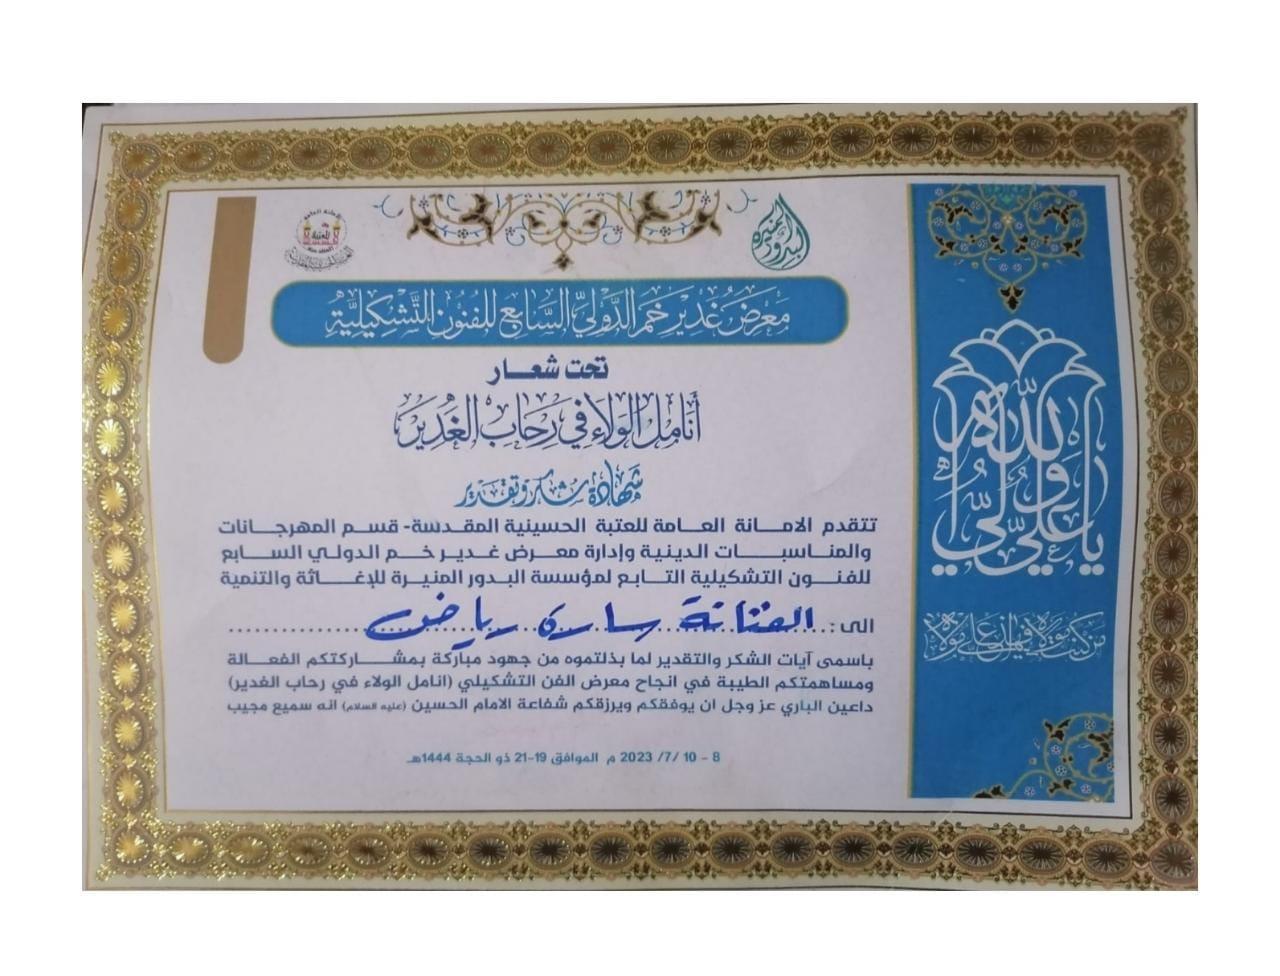 البدور المنيرة
معرض غدير خم الدولي السابع للفنون التشكيلية
تحت شعار
أنامل الولاء في رحاب الغدير
شهادة شكر وتقدير
تتقدم الامانة العامة للعتبة الحسينية المقدسة- قسم المهرجانات
والمناسبات الدينية وإدارة معرض غدير خم الدولي السابع
للفنون التشكيلية التابع لمؤسسة البدور المنيرة للإغاثة والتنمية
الى: الفنانة سارة رياض
باسمى آيات الشكر والتقدير لما بذلتموه من جهود مباركة بمشاركتكم الفعالة
ومساهمتكم الطيبة في انجاح معرض الفن التشكيلي (انامل الولاء في رحاب الغدير)
داعين الباري عز وجل ان يوفقكم ويرزقكم شفاعة الامام الحسين (عليه السلام) انه سميع مجيب
8 - 10 /7/ 2023 م الموافق 19-21 ذو الحجة 1444هـ
يا علي ولي الله
من كنت مولاه فهذا علي مولاه